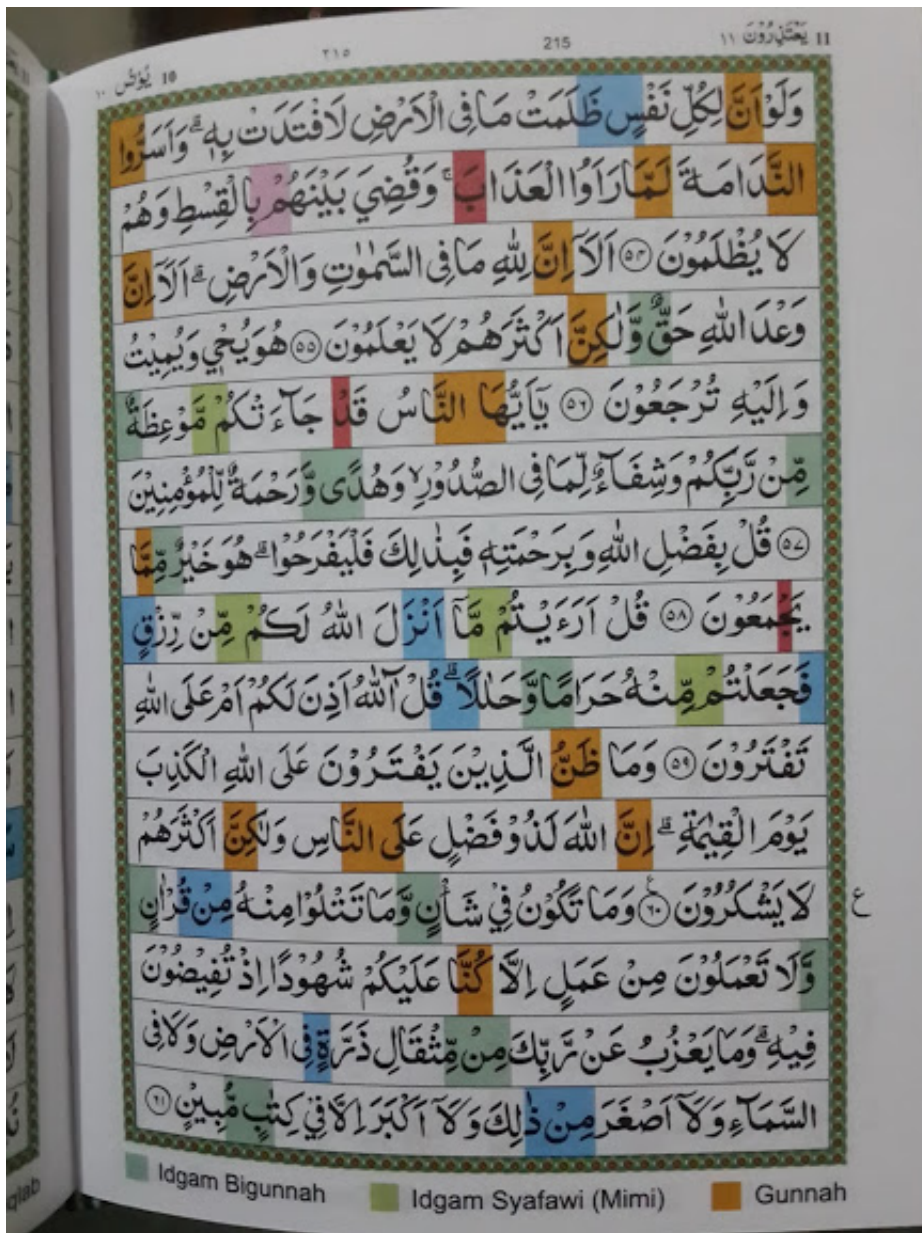 ٢١٥
215
11 يَعْتَذِرُوْنَ ١١
10 يُوْنُس ١٠
وَلَوْ اَنَّ لِكُلِّ نَفْسٍ ظَلَمَتْ مَا فِى الْاَرْضِ لَافْتَدَتْ بِهٖ ۗ وَاَسَرُّوا
النَّدَامَةَ لَمَّا رَاَوُا الْعَذَابَ ۚ وَقُضِيَ بَيْنَهُمْ بِالْقِسْطِ وَهُمْ
لَا يُظْلَمُوْنَ ٥٤ اَلَآ اِنَّ لِلّٰهِ مَا فِى السَّمٰوٰتِ وَالْاَرْضِ ۗ اَلَآ اِنَّ
وَعْدَ اللّٰهِ حَقٌّ وَّلٰكِنَّ اَكْثَرَهُمْ لَا يَعْلَمُوْنَ ٥٥ هُوَ يُحْيٖ وَيُمِيْتُ
وَاِلَيْهِ تُرْجَعُوْنَ ٥٦ يٰٓاَيُّهَا النَّاسُ قَدْ جَاۤءَتْكُمْ مَّوْعِظَةٌ
مِّنْ رَّبِّكُمْ وَشِفَاۤءٌ لِّمَا فِى الصُّدُوْرِۙ وَهُدًى وَّرَحْمَةٌ لِّلْمُؤْمِنِيْنَ
٥٧ قُلْ بِفَضْلِ اللّٰهِ وَبِرَحْمَتِهٖ فَبِذٰلِكَ فَلْيَفْرَحُوْا ۗ هُوَ خَيْرٌ مِّمَّا
يَجْمَعُوْنَ ٥٨ قُلْ اَرَءَيْتُمْ مَّآ اَنْزَلَ اللّٰهُ لَكُمْ مِّنْ رِّزْقٍ
فَجَعَلْتُمْ مِّنْهُ حَرَامًا وَّحَلٰلًا ۗ قُلْ اٰۤللّٰهُ اَذِنَ لَكُمْ اَمْ عَلَى اللّٰهِ
تَفْتَرُوْنَ ٥٩ وَمَا ظَنُّ الَّذِيْنَ يَفْتَرُوْنَ عَلَى اللّٰهِ الْكَذِبَ
يَوْمَ الْقِيٰمَةِ ۗ اِنَّ اللّٰهَ لَذُوْ فَضْلٍ عَلَى النَّاسِ وَلٰكِنَّ اَكْثَرَهُمْ
لَا يَشْكُرُوْنَ ٦٠ وَمَا تَكُوْنُ فِيْ شَأْنٍ وَّمَا تَتْلُوْا مِنْهُ مِنْ قُرْاٰنٍ
ع
وَّلَا تَعْمَلُوْنَ مِنْ عَمَلٍ اِلَّا كُنَّا عَلَيْكُمْ شُهُوْدًا اِذْ تُفِيْضُوْنَ
فِيْهِ ۗ وَمَا يَعْزُبُ عَنْ رَّبِّكَ مِنْ مِّثْقَالِ ذَرَّةٍ فِى الْاَرْضِ وَلَا فِى
السَّمَاۤءِ وَلَآ اَصْغَرَ مِنْ ذٰلِكَ وَلَآ اَكْبَرَ اِلَّا فِيْ كِتٰبٍ مُّبِيْنٍ ٦١
Idgam Bigunnah
Idgam Syafawi (Mimi)
Gunnah